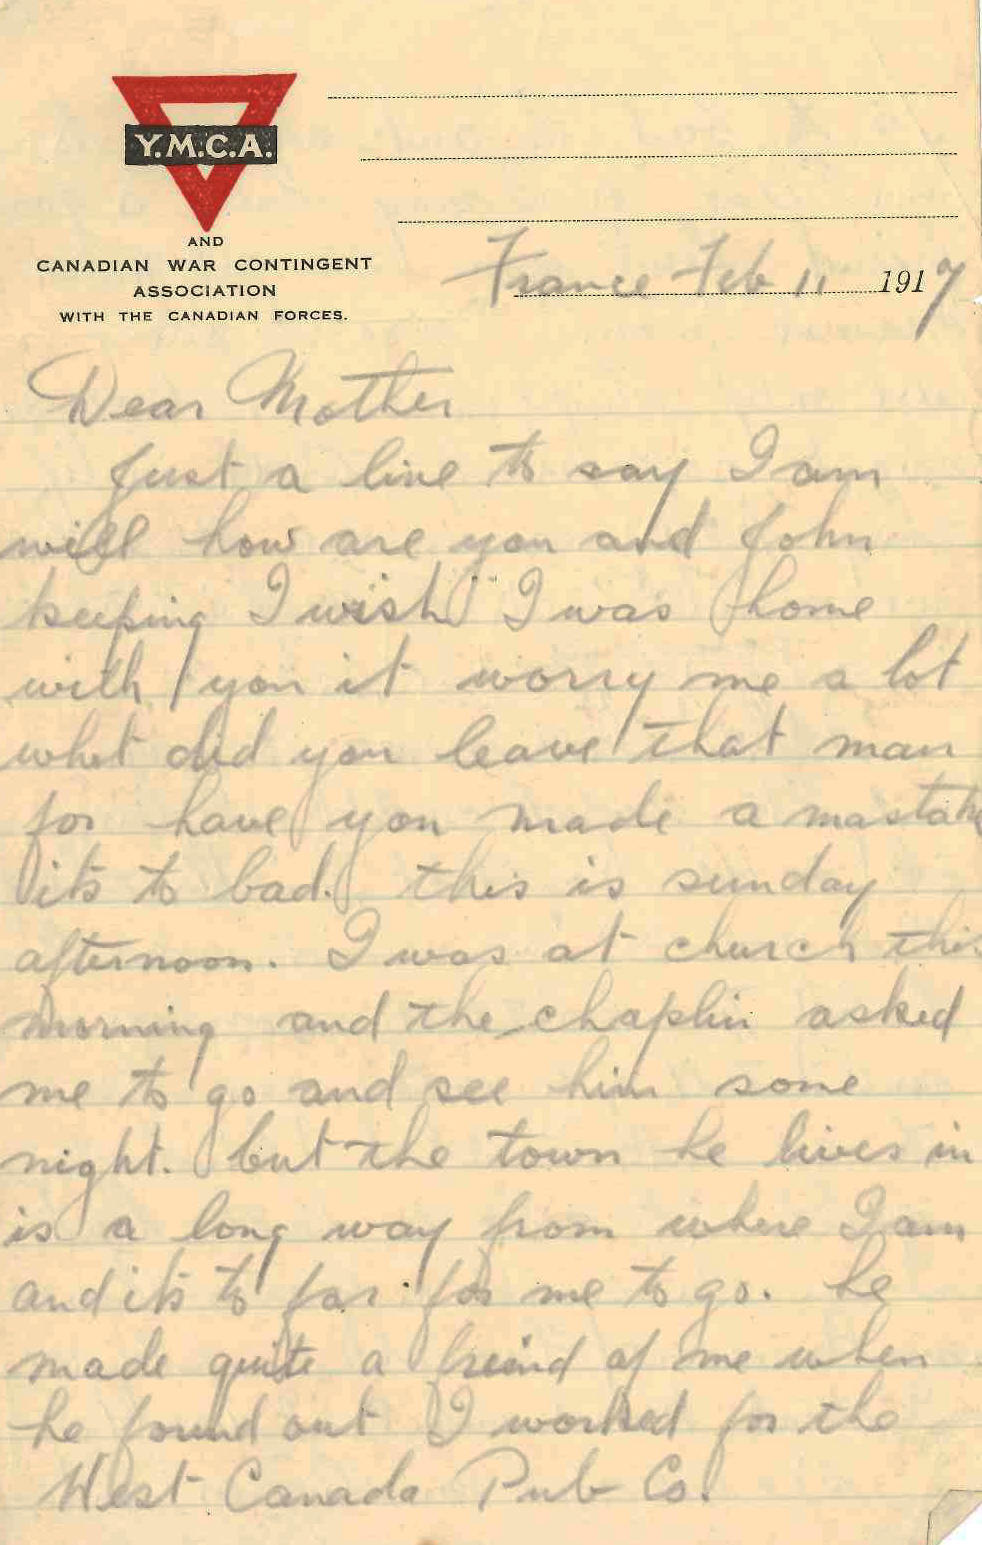 Y.M.C.A.
AND
CANADIAN WAR CONTINGENT
ASSOCIATION
WITH THE CANADIAN FORCES.
France Feb 11 1917
Dear Mother
Just a line to say I am
well how are you and John
keeping I wish I was home
with you it worry me a lot
what did you leave that man
for have you made a mastake
its to bad. this is sunday
afternoon. I was at church this
morning and the chaplin asked
me to go and see him some
night. but the town he lives in
is a long way from where I am
and its to far for me to go. he
made quite a freind of me when
he found out I worked for the
West Canada Pub Co.